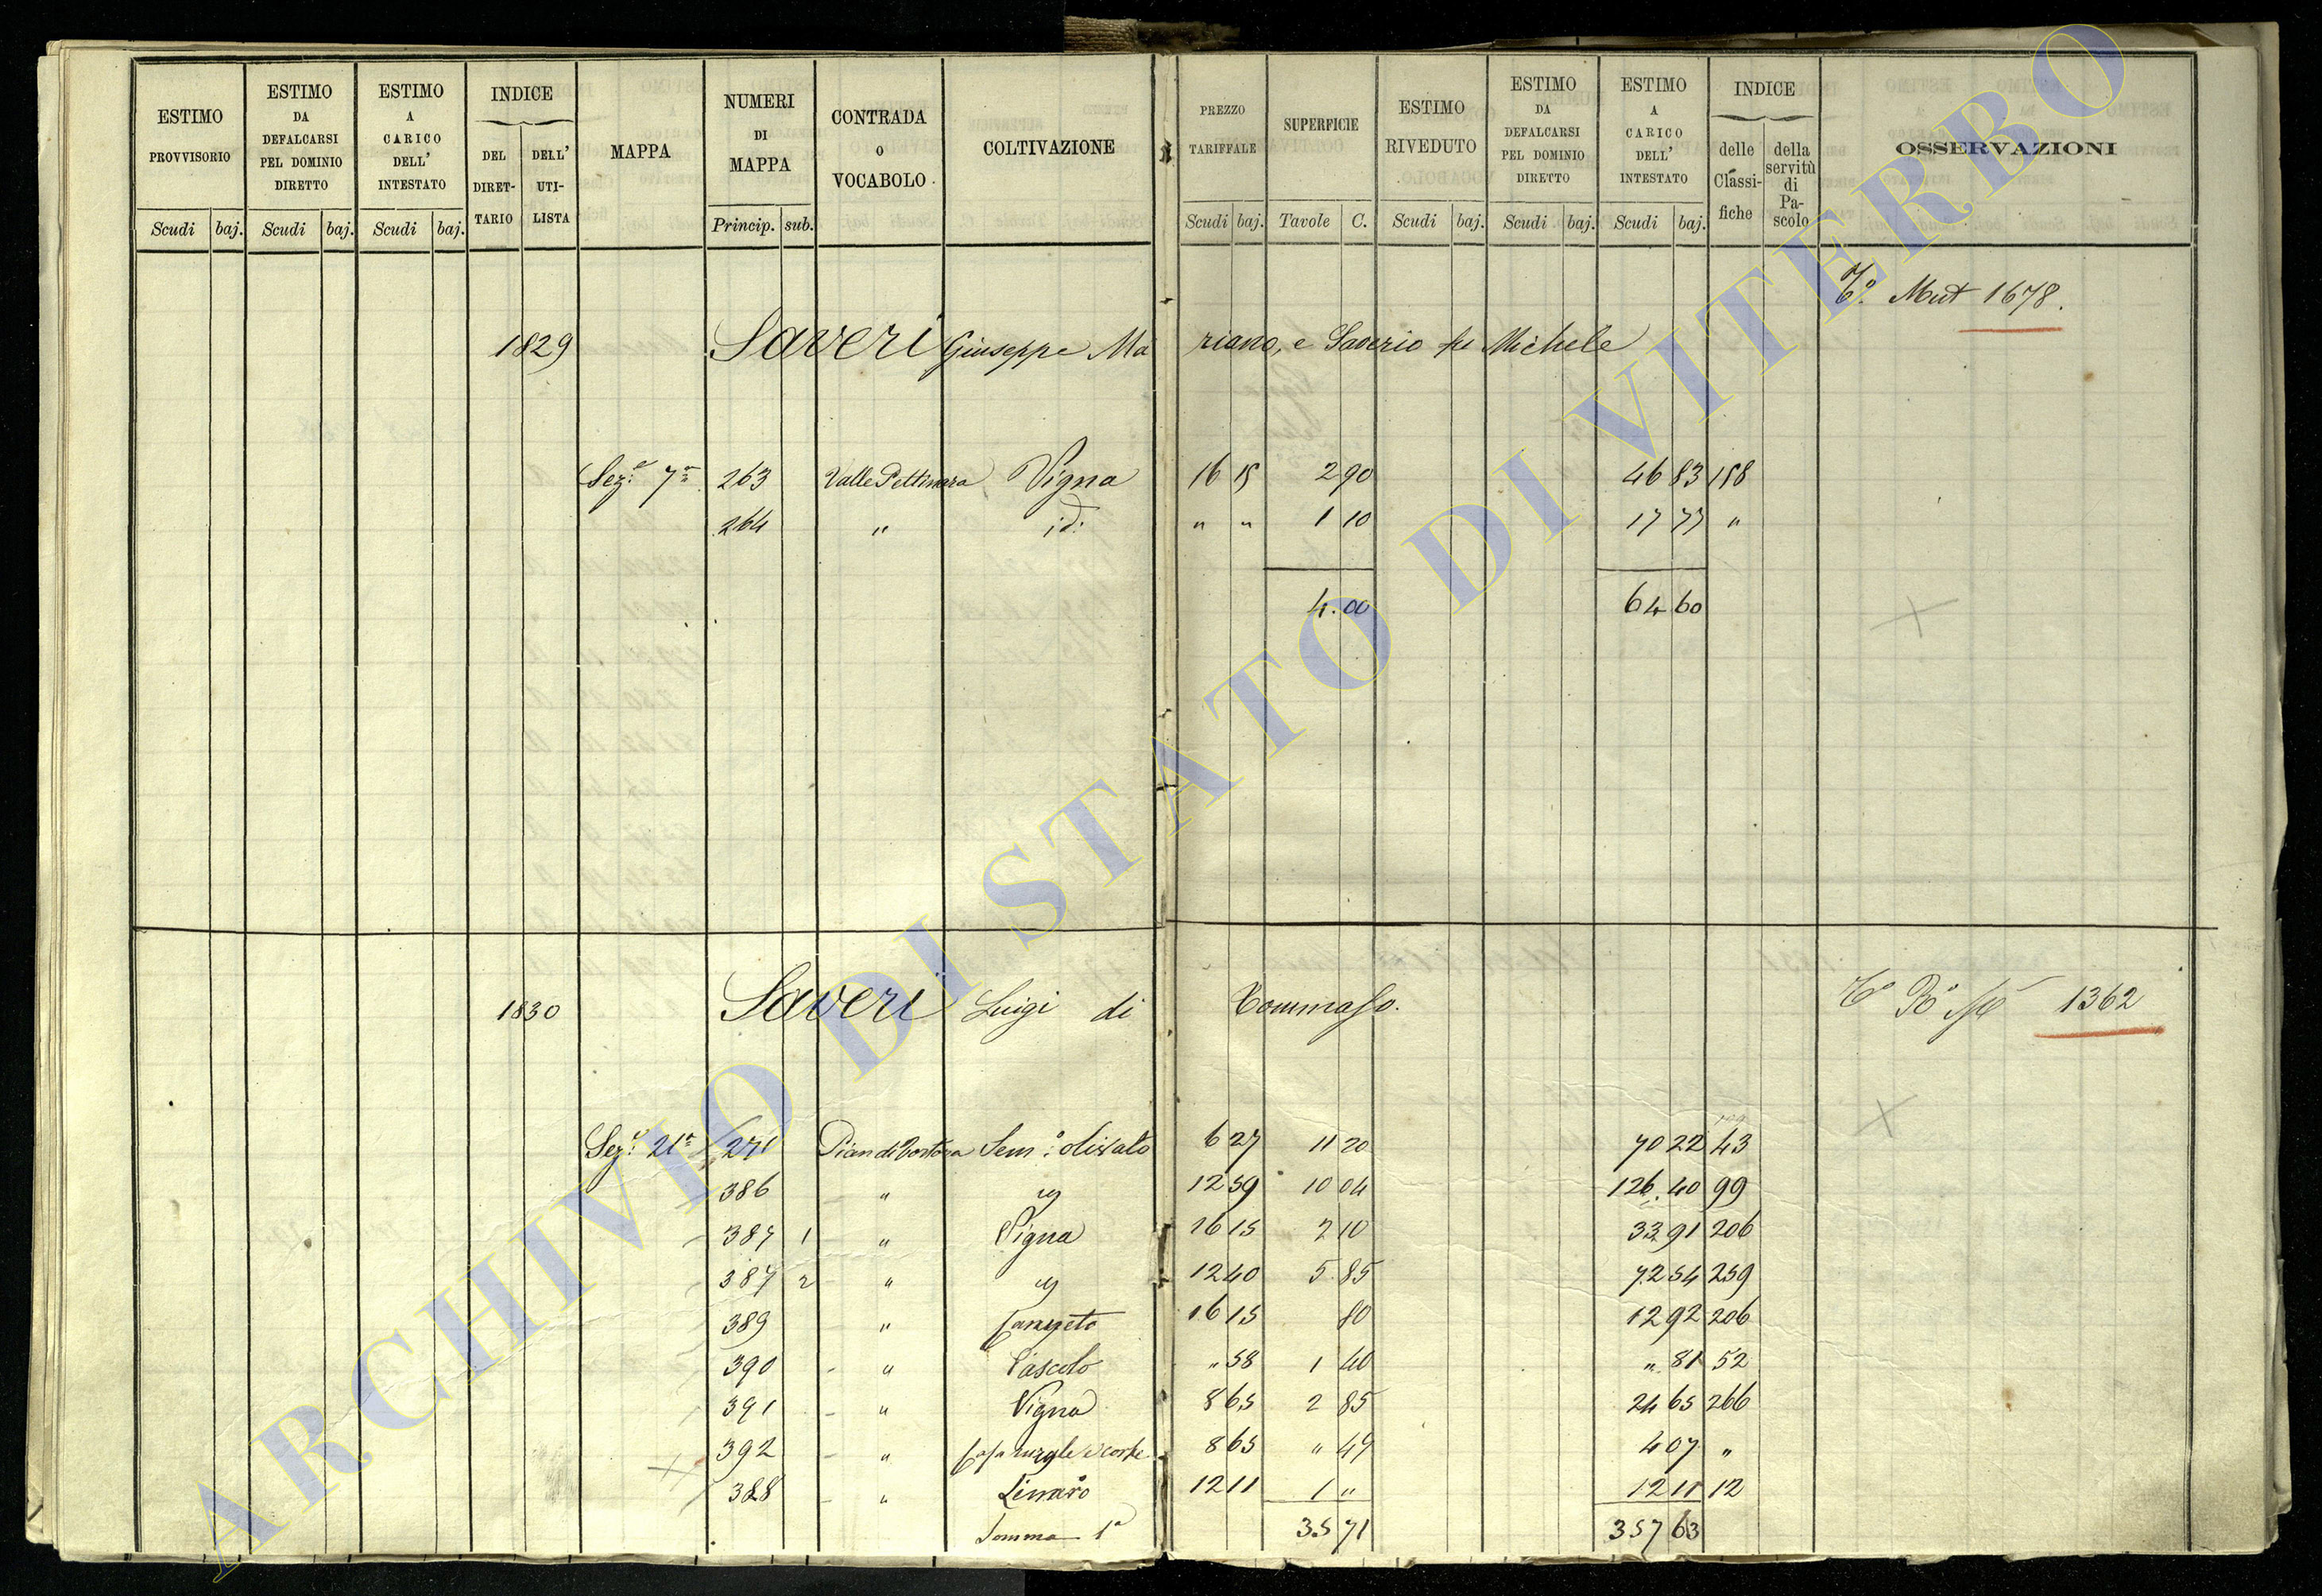 ESTIMO PROVVISORIO Scudi baj.
ESTIMO DA DEFALCARSI PEL DOMINIO DIRETTO Scudi baj.
ESTIMO A CARICO DELL' INTESTATO Scudi baj.
INDICE DEL DIRET-TARIO DELL' UTI-LISTA
MAPPA
NUMERI DI MAPPA Princip. sub.
CONTRADA O VOCABOLO
COLTIVAZIONE
PREZZO TARIFFALE Scudi baj.
SUPERFICIE Tavole C.
ESTIMO RIVEDUTO Scudi baj.
ESTIMO DA DEFALCARSI PEL DOMINIO DIRETTO Scudi baj.
ESTIMO A CARICO DELL' INTESTATO Scudi baj.
INDICE delle Classi-fiche della servitù di Pa-scolo
OSSERVAZIONI
Mut 1678.
1829 Saveri Giuseppe Mariano, e Saverio fu Michele
Sez.e 7a 263 Valle Pettinara Vigna 16 15 2 90 46 83 158
264 " id: " " 1 10 17 77 "
4.00 64 60
1830 Saveri Luigi di Tommaso. 1362
Sez.e 21a 271 Pian di Sem:o olivato 6 27 11 20 70 22 43
386 " " 12 59 10 04 126.40 99
387 1 " Vigna 16 15 2 10 33 91 206
387 2 " " 12 40 5 85 72 54 259
389 " Canneto 16 15 80 12 92 206
390 " Pascolo " 58 1 40 " 81 52
391 " Vigna 8 65 2 85 24 65 266
392 " Casa rurale e corte 8 65 " 47 4 07 "
388 " 12 11 1 " 12 11 12
Somma 1a 35 71 357 63
ARCHIVIO DI STATO DI VITERBO